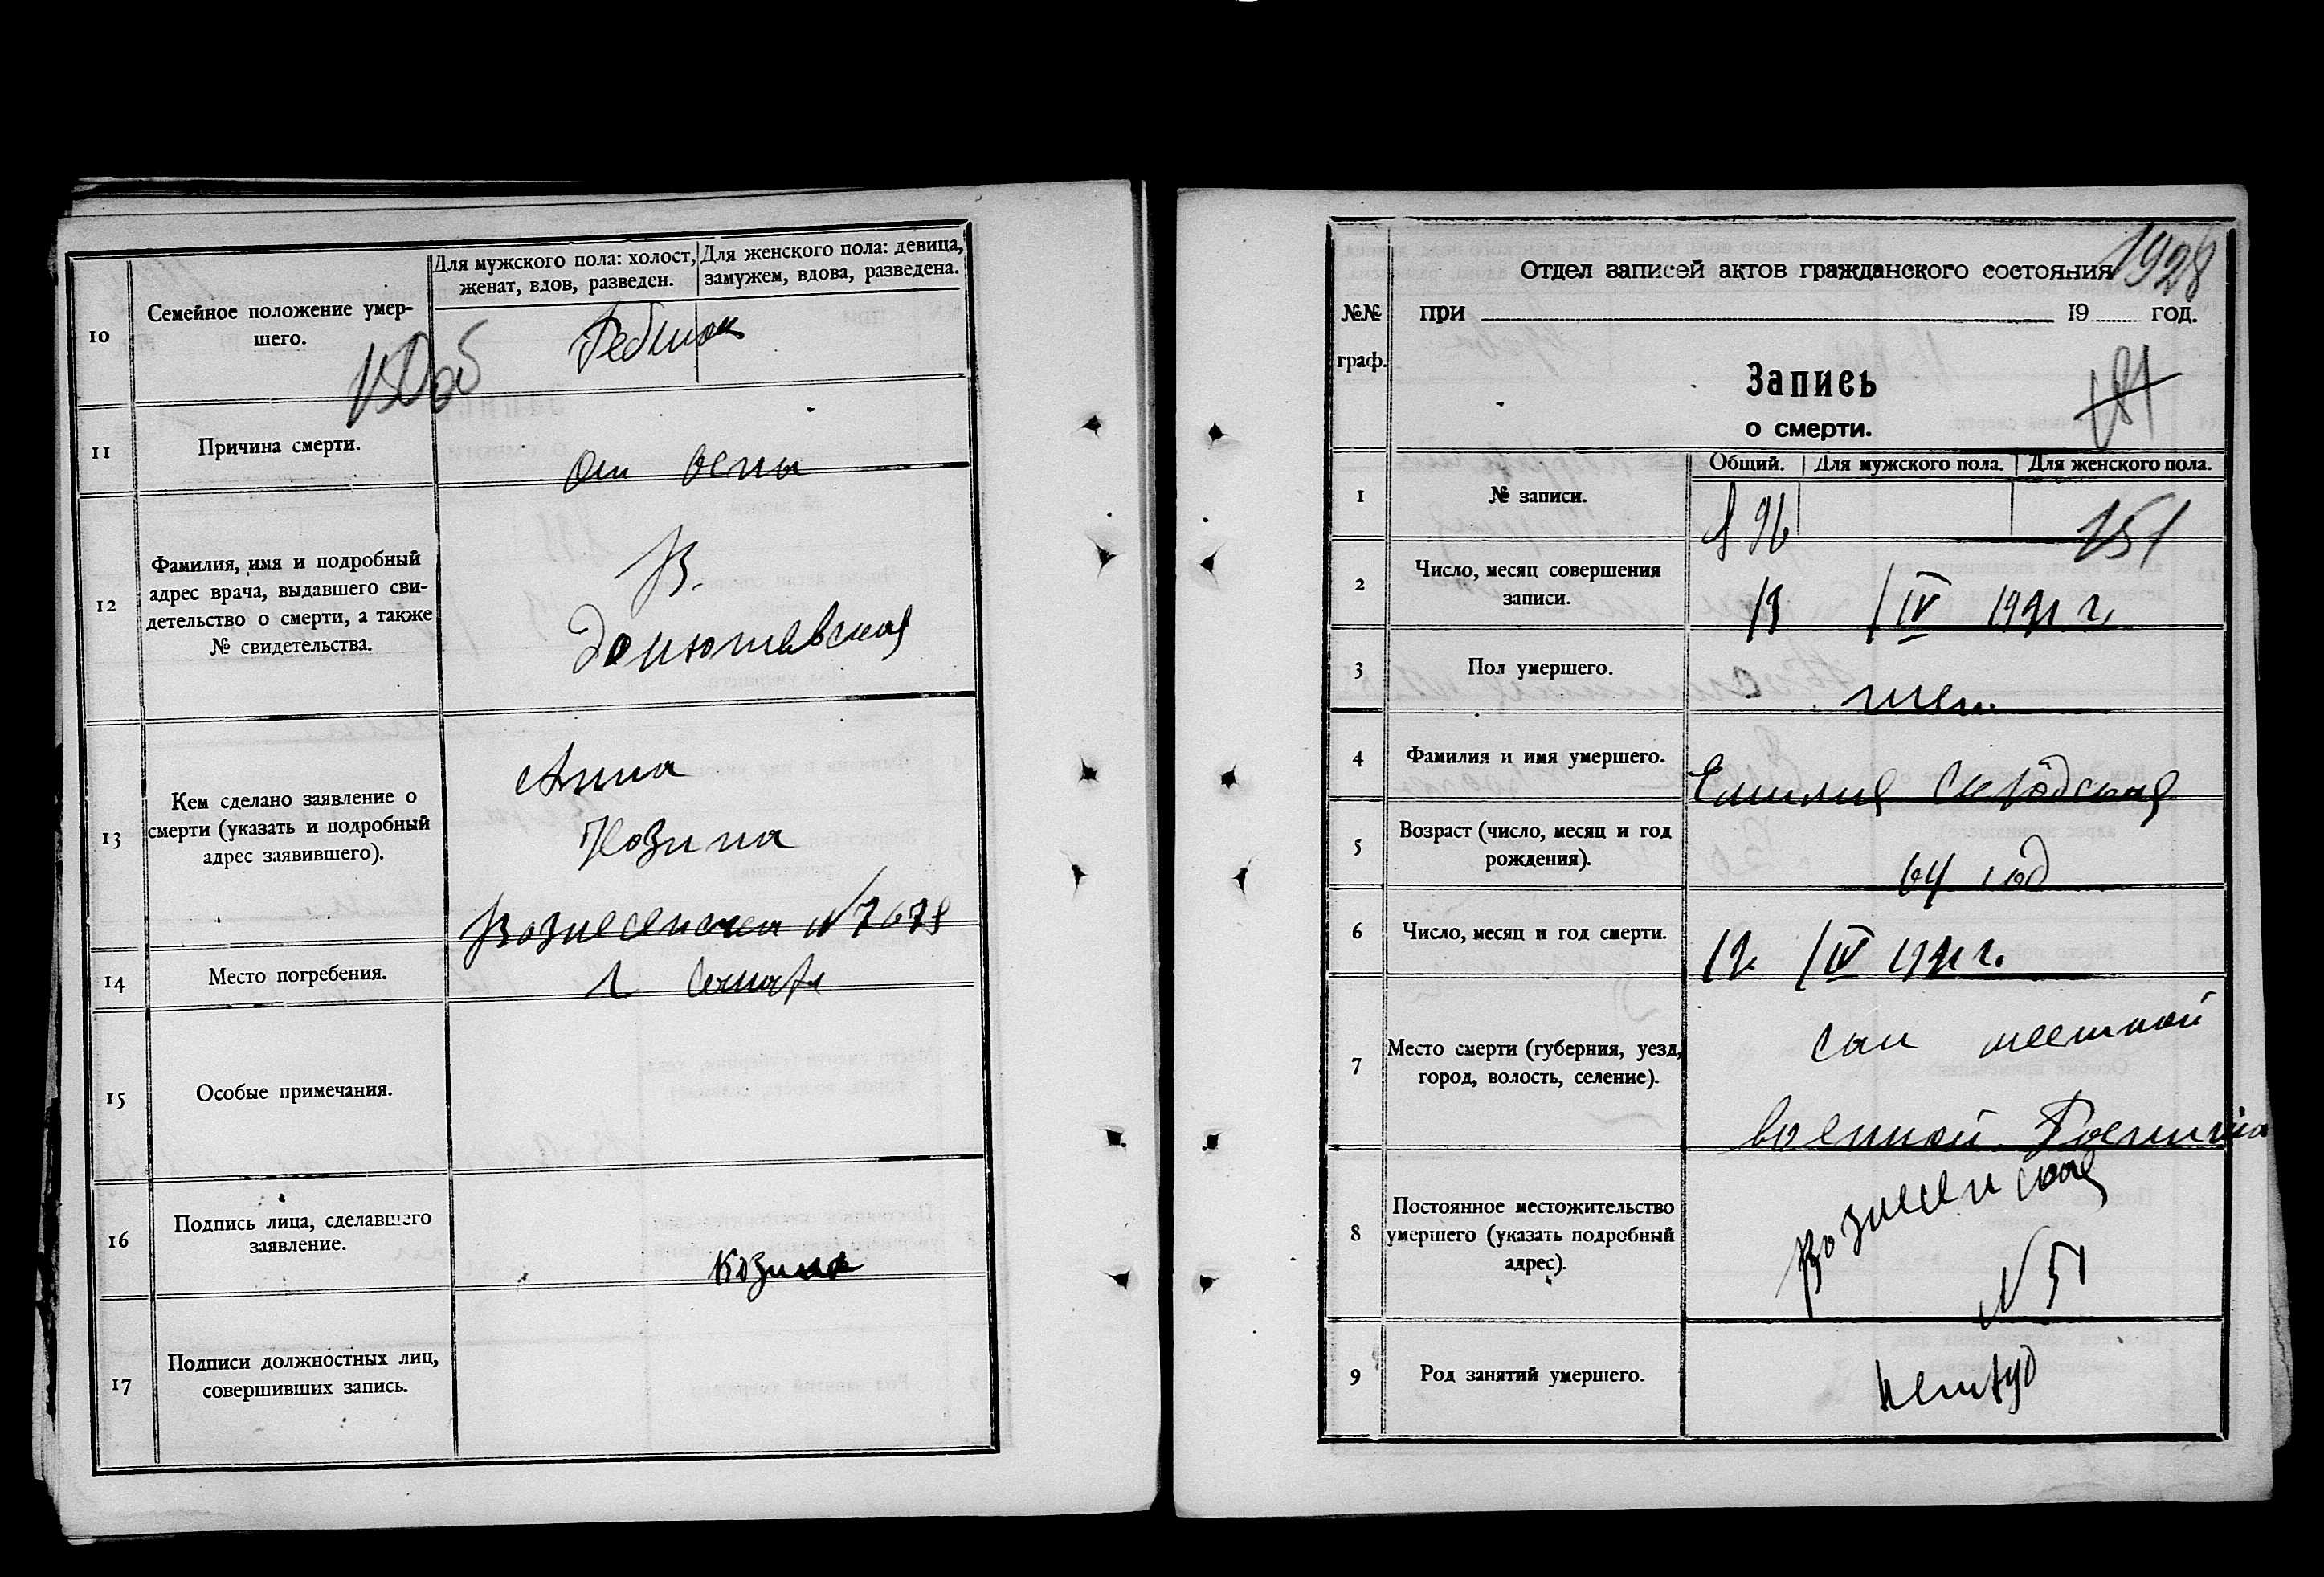 10
Семейное положение умер-
шего.
Для мужского пола: холост,
женат, вдов, разведен.
Для женского пола: девица,
замужем, вдова, разведена.
Ребенок
11
Причина смерти.
От оспы
12
Фамилия, имя и подробный
адрес врача, выдавшего сви-
детельство о смерти, а также
№ свидетельства.
В.
13
Кем сделано заявление о
смерти (указать и подробный
адрес заявившего).
Анна
Козина
Вознесенская
14
Место погребения.
15
Особые примечания.
16
Подпись лица, сделавшего
заявление.
Козина
17
Подписи должностных лиц,
совершивших запись.
1928
Отдел записей актов гражданского состояния
№№
граф.
при 19 год.
Запись
о смерти.
181
Общий.
Для мужского пола.
Для женского пола.
1
№ записи.
151
2
Число, месяц совершения
записи.
19 / IV 1921 г.
3
Пол умершего.
жен.
4
Фамилия и имя умершего.
Эмилия
5
Возраст (число, месяц и год
рождения).
64 год
6
Число, месяц и год смерти.
/ IV 1921 г.
7
Место смерти (губерния, уезд,
город, волость, селение).
военной
8
Постоянное местожительство
умершего (указать подробный
адрес).
Вознесенская
N 51
9
Род занятий умершего.
нетруд